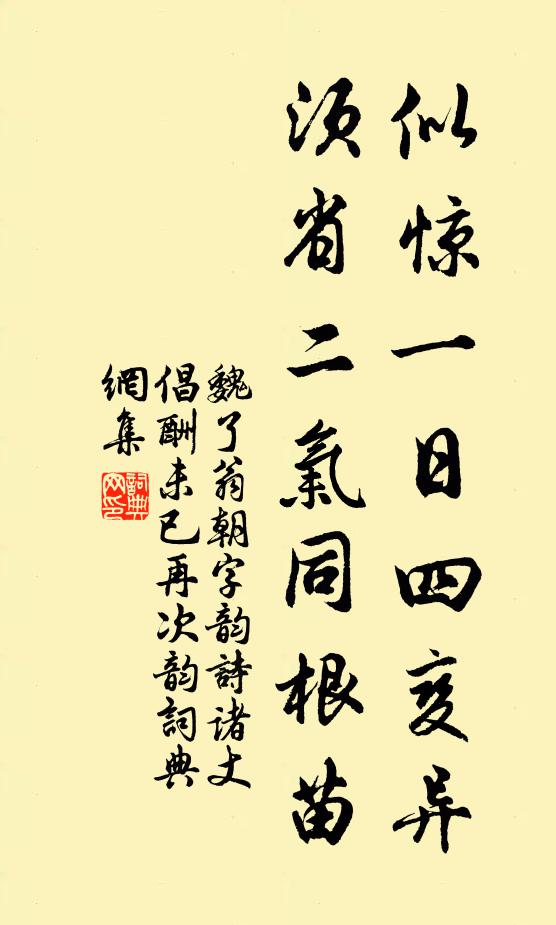 似惊一日四变异
须省二氣同根苗
魏了翁朝字韵詩诸丈
倡酬未已再次韵詞典
網集
詞典
网印